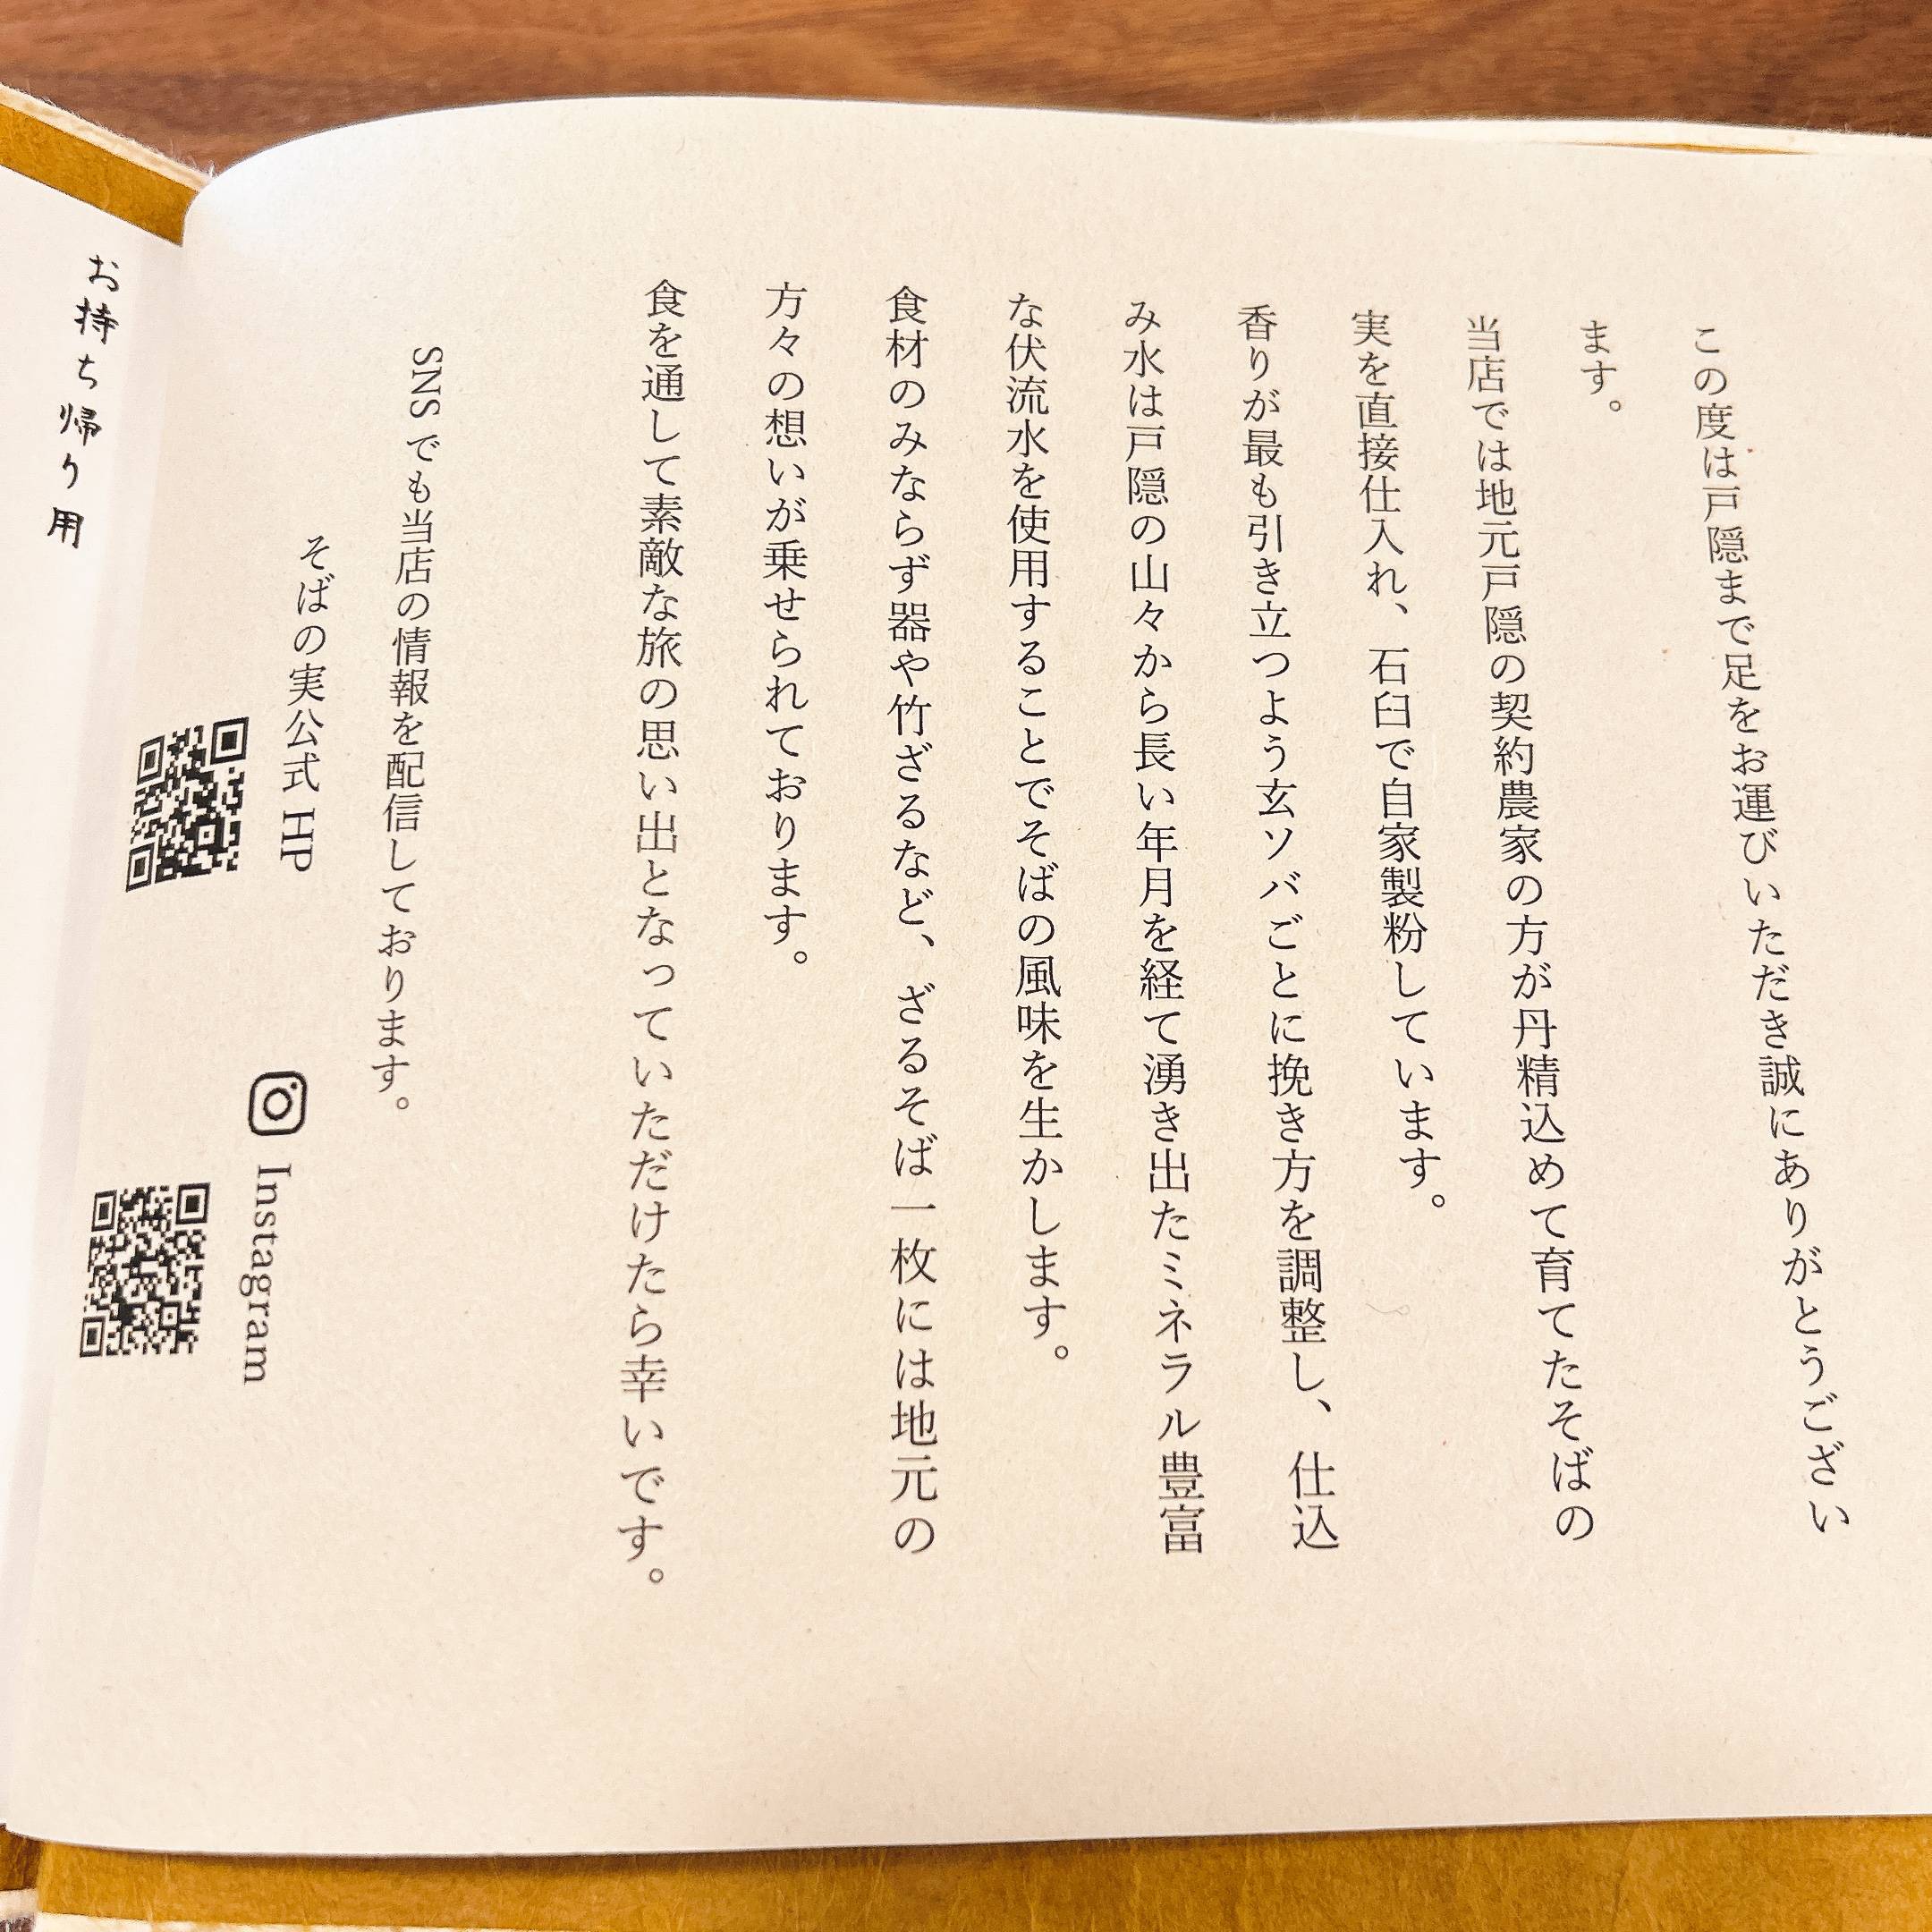 この度は戸隠まで足をお運びいただき誠にありがとうござい
ます。
当店では地元戸隠の契約農家の方が丹精込めて育てたそばの
実を直接仕入れ、石臼で自家製粉しています。
香りが最も引き立つよう玄ソバごとに挽き方を調整し、仕込
み水は戸隠の山々から長い年月を経て湧き出たミネラル豊富
な伏流水を使用することでそばの風味を生かします。
食材のみならず器や竹ざるなど、ざるそば一枚には地元の
方々の想いが乗せられております。
食を通して素敵な旅の思い出となっていただけたら幸いです。
SNSでも当店の情報を配信しております。
そばの実公式 HP
Instagram
お持ち帰り用